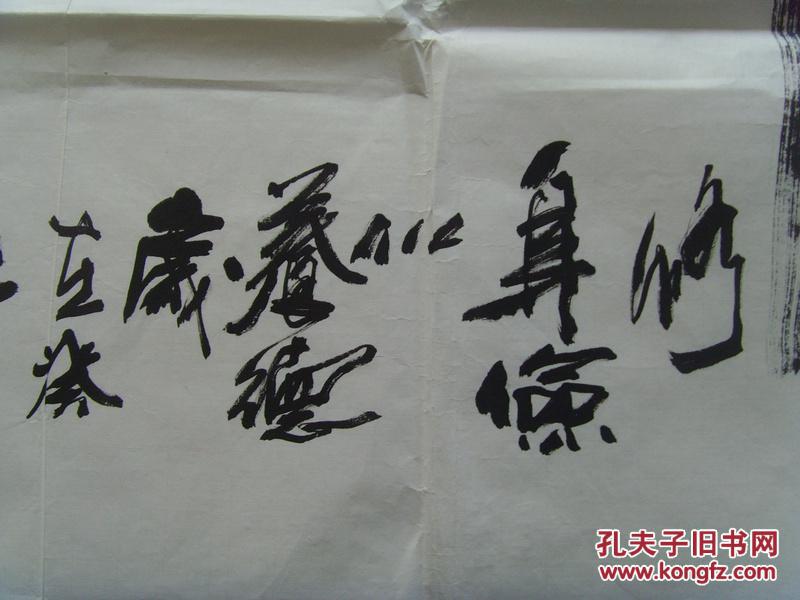 修
身儉
以
養德
歲
在癸
孔夫子旧书网
www.kongfz.com